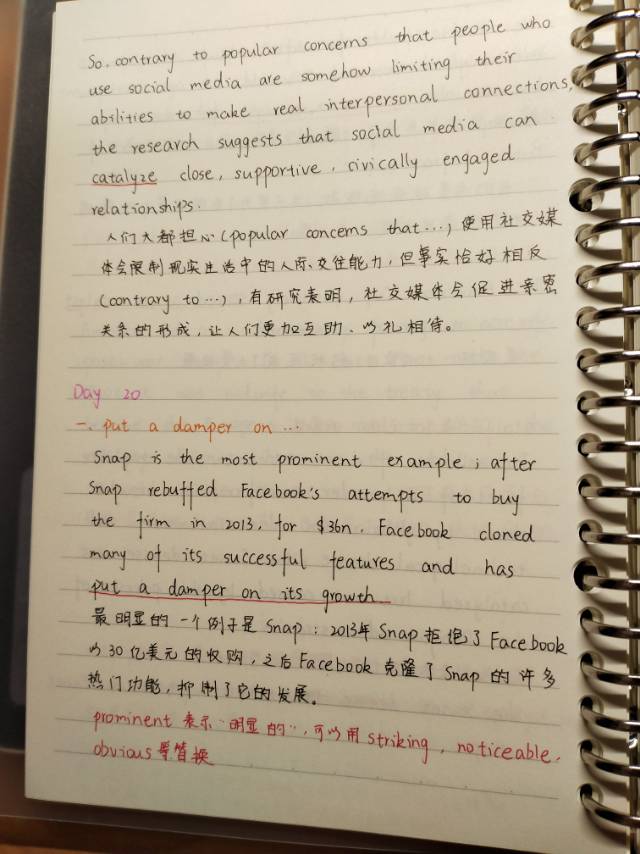 So, contrary to popular concerns that people who
use social media are somehow limiting their
abilities to make real interpersonal connections,
the research suggests that social media can
catalyze close, supportive, civically engaged
relationships.
人们大都担心(popular concerns that…)使用社交媒
体会限制现实生活中的人际交往能力,但事实恰好相反
(contrary to…),有研究表明,社交媒体会促进亲密
关系的形成,让人们更加互助、以礼相待。
Day 20
一、put a damper on …
Snap is the most prominent example; after
Snap rebuffed Facebook's attempts to buy
the firm in 2013, for $36n, Facebook cloned
many of its successful features and has
put a damper on its growth
最明显的一个例子是Snap:2013年Snap拒绝了Facebook
以30亿美元的收购,之后Facebook克隆了Snap的许多
热门功能,抑制了它的发展。
prominent 表示"明显的",可以用striking, noticeable,
obvious等替换